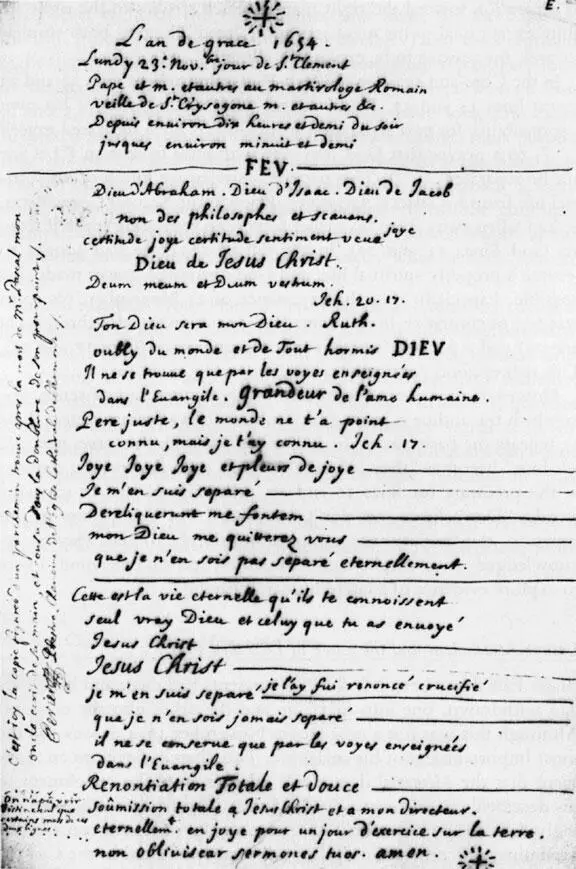 E.
L'an de grace 1654.
Lundy 23. Nov.bre jour de St Clement
Pape et m. et autres au martirologe Romain
veille de St Crysogone m. et autres &c.
Depuis environ dix heures et demi du soir
jusques environ minuit et demi
FEV.
Dieu d'Abraham. Dieu d'Isaac. Dieu de Jacob
non des philosophes et scavans.
certitude joye certitude sentiment veue joye
Dieu de Jesus Christ.
Deum meum et Deum vestrum.
Jeh. 20. 17.
Ton Dieu sera mon Dieu. Ruth.
oubly du monde et de Tout hormis DIEV
Il ne se trouve que par les voyes enseignées
dans l'Euangile. Grandeur de l'ame humaine.
Pere juste, le monde ne t'a point
connu, mais je t'ay connu. Jeh. 17.
Joye Joye Joye et pleurs de joye
Je m'en suis separé
Dereliquerunt me fontem
mon Dieu me quitterez vous
que je n'en sois pas separé eternellement
Cette est la vie eternelle qu'ils te connoissent
seul vray Dieu et celuy que tu as envoyé
Jesus Christ
Jesus Christ
je m'en suis separé je l'ay fui renoncé crucifié
que je n'en sois jamais separé
il ne se conserve que par les voyes enseignées
dans l'Euangile.
Renontiation Totale et douce
soûmission totale a Jesus Christ et a mon directeur.
eternellem.t en joye pour un jour d'exercice sur la terre.
non obliviscar sermones tuos. amen.
la copie figurée du parchemin trouvé apres la mort de Mr Pascal mon
oncle écrit de sa main, et cousu dans la doublure de son pourpoint.
On n'a pu voir
que
certains mots de ces
deux lignes.